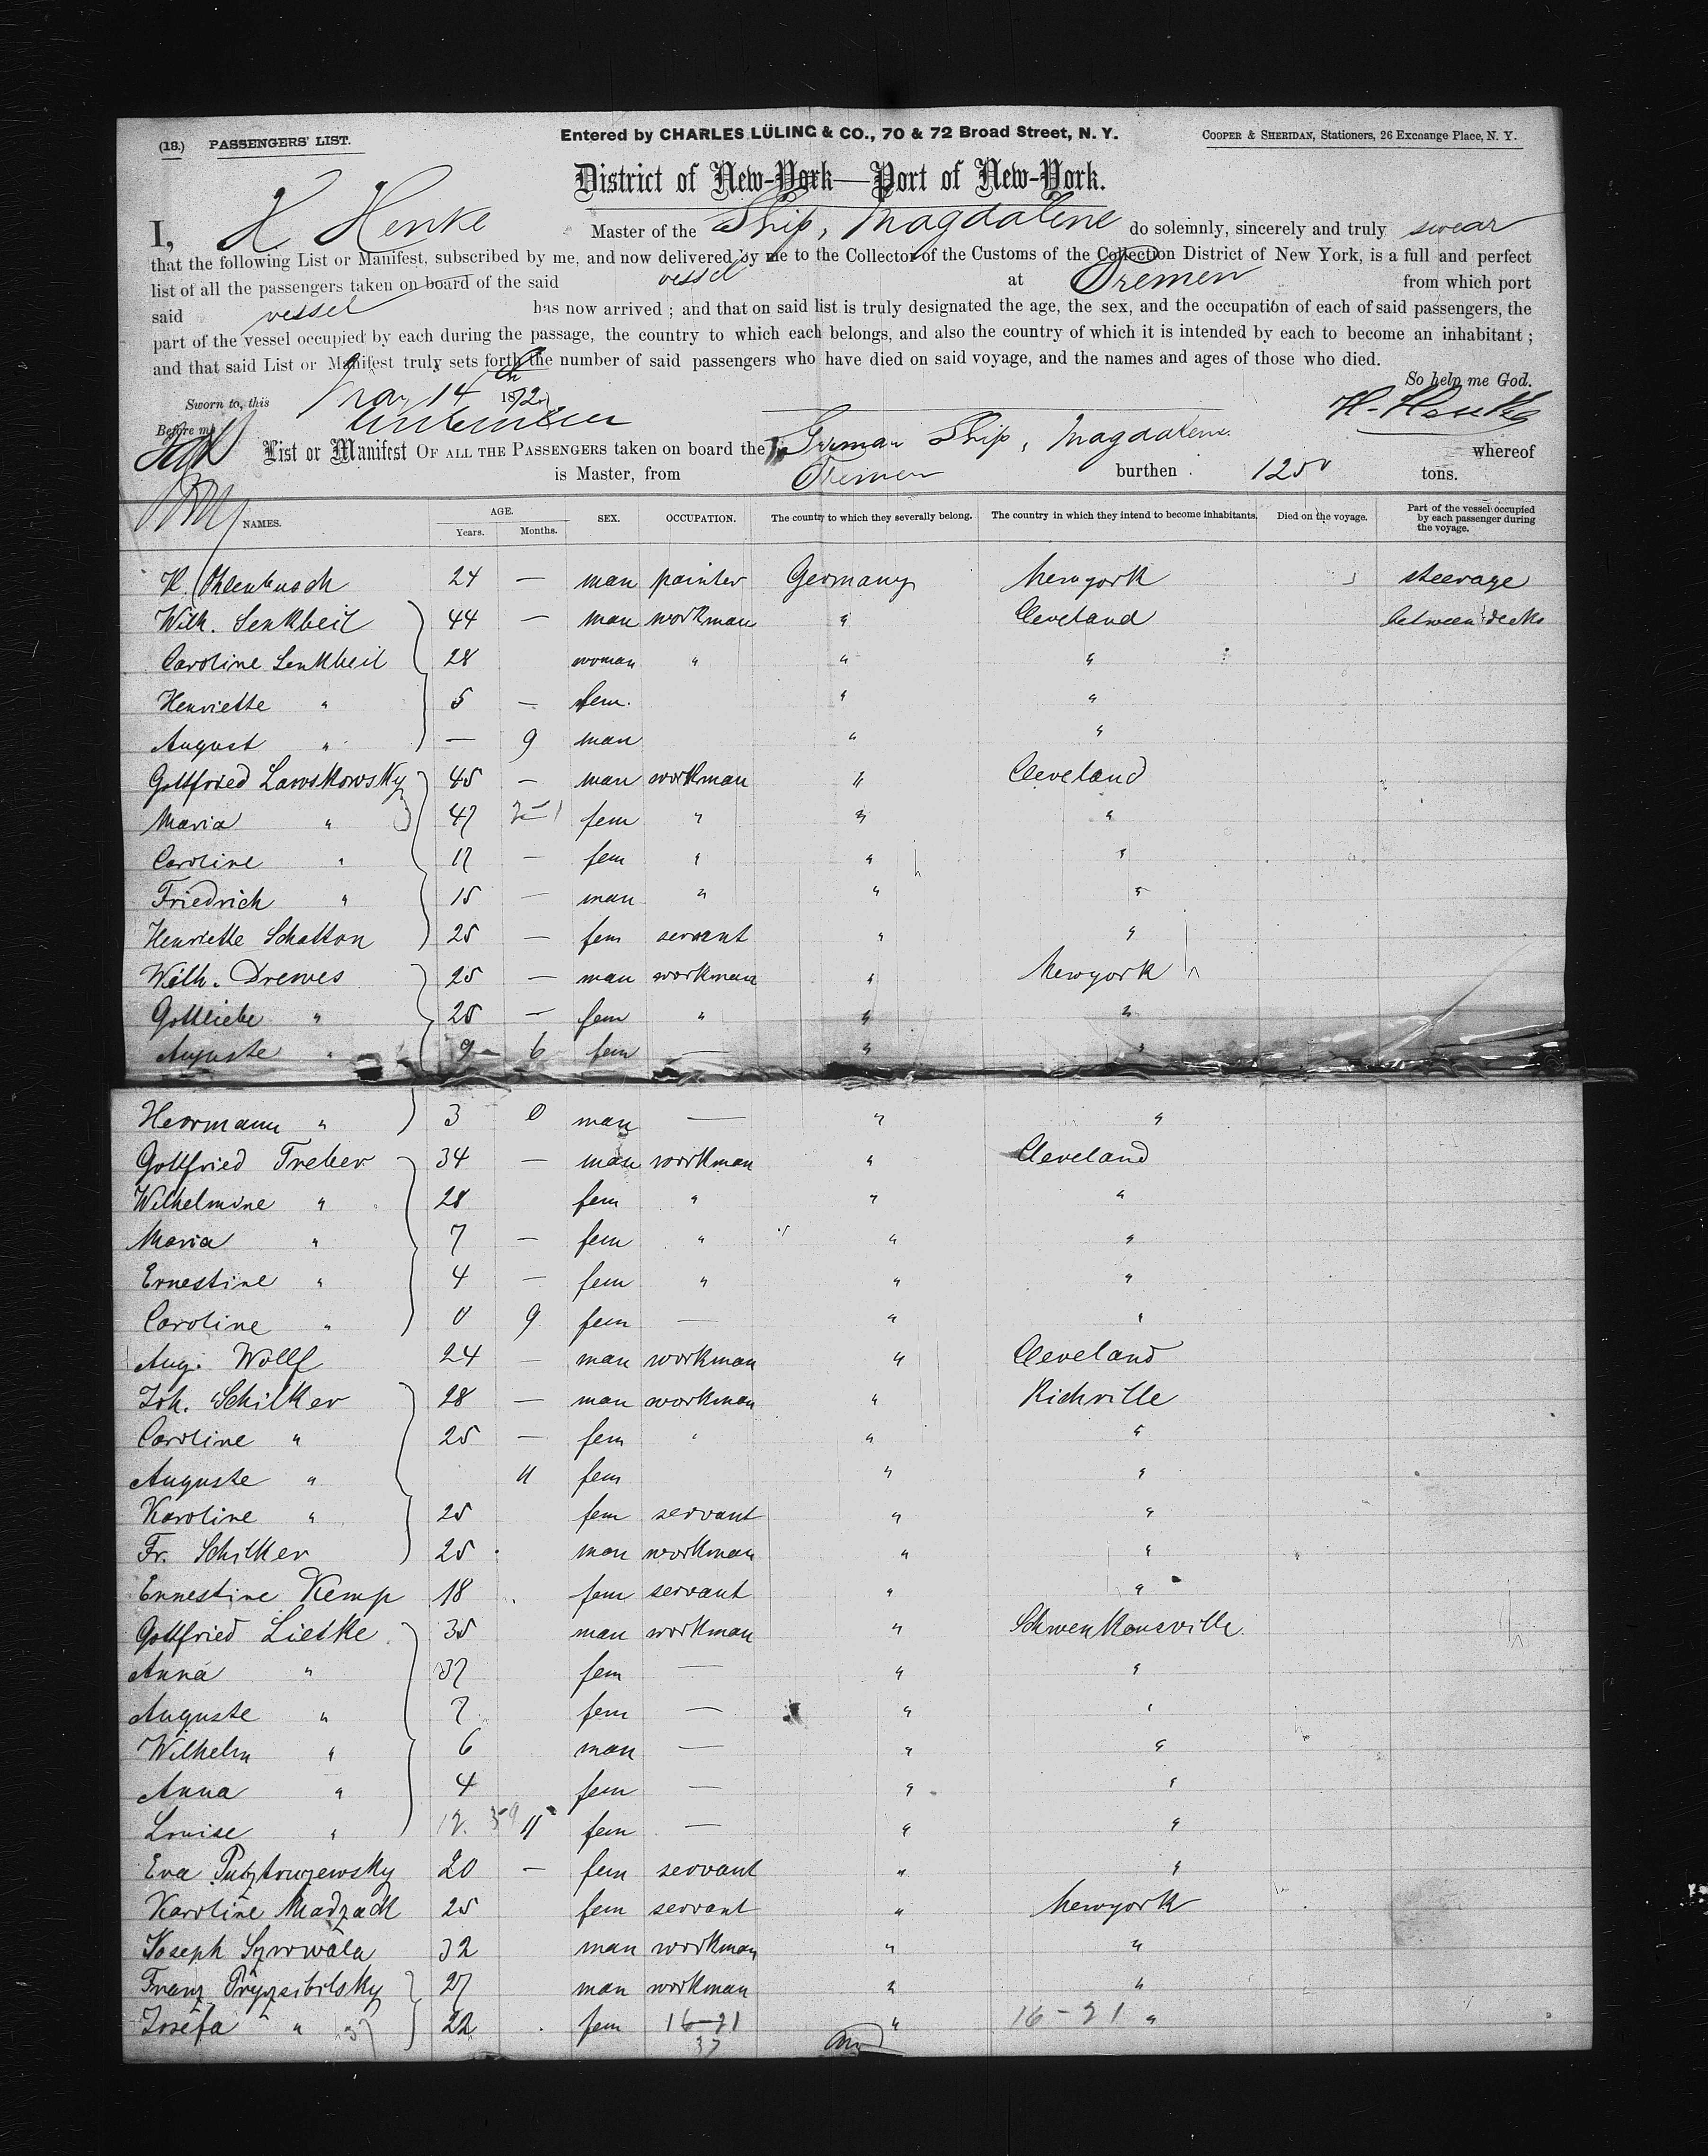 (18.) PASSENGERS' LIST. Entered by CHARLES LÜLING & CO., 70 & 72 Broad Street, N. Y. COOPER & SHERIDAN, Stationers, 26 Exchange Place, N. Y.
District of New-York—Port of New-York.
I, H. Henke Master of the Ship, Magdalene do solemnly, sincerely and truly swear
that the following List or Manifest, subscribed by me, and now delivered by me to the Collector of the Customs of the Collection District of New York, is a full and perfect
list of all the passengers taken on board of the said vessel at Bremen from which port
said vessel has now arrived ; and that on said list is truly designated the age, the sex, and the occupation of each of said passengers, the
part of the vessel occupied by each during the passage, the country to which each belongs, and also the country of which it is intended by each to become an inhabitant ;
and that said List or Manifest truly sets forth the number of said passengers who have died on said voyage, and the names and ages of those who died.
So help me God.
Sworn to, this May 14th 1872 H. Henke
Before me
List or Manifest OF ALL THE PASSENGERS taken on board the German Ship, Magdalene whereof
is Master, from Bremen burthen 1250 tons.
NAMES. AGE. Years. Months. SEX. OCCUPATION. The country to which they severally belong. The country in which they intend to become inhabitants. Died on the voyage. Part of the vessel occupied by each passenger during the voyage.
H. Ohlenbusch 24 — man painter Germany Newyork steerage
Wilh. Senkbeil 44 — man workman " Cleveland between decks
Caroline Senkbeil 28 woman " " "
Henriette " 5 — fem. " "
August " — 9 man " "
Gottfried Lawskowsky 45 — man workman " Cleveland
Maria " 47 fem " " "
Caroline " 17 — fem " " "
Friedrich " 15 — man " " "
Henriette Schatton 25 — fem servant " "
Wilh. Drewes 25 — man workman " Newyork
Gottliebe " 25 — fem " " "
Auguste " 9 6 fem — " "
Herrmann " 3 0 man — " "
Gottfried Treber 34 — man workman " Cleveland
Wilhelmine " 28 fem " " "
Maria " 7 — fem " " "
Ernestine " 4 — fem " " "
Caroline " 0 9 fem — " "
Aug. Wollf 24 — man workman " Cleveland
Joh. Schilker 28 — man workman " Richville
Caroline " 25 — fem " " "
Auguste " 11 fem " "
Karoline " 25 fem servant " "
Fr. Schilker 25 man workman " "
Ernestine Kemp 18 fem servant " "
Gottfried Lietke 35 man workman " Schwenkensville
Anna " 37 fem — " "
Auguste " 7 fem — " "
Wilhelm " 6 man — " "
Anna " 4 fem — " "
Louise " 11 fem — " "
Eva 20 — fem servant " "
Karoline Madzack 25 fem servant " Newyork
Joseph 32 man workman " "
Franz 27 man workman " "
Josefa " 37 22 fem 16–21 " 16–21 "
37